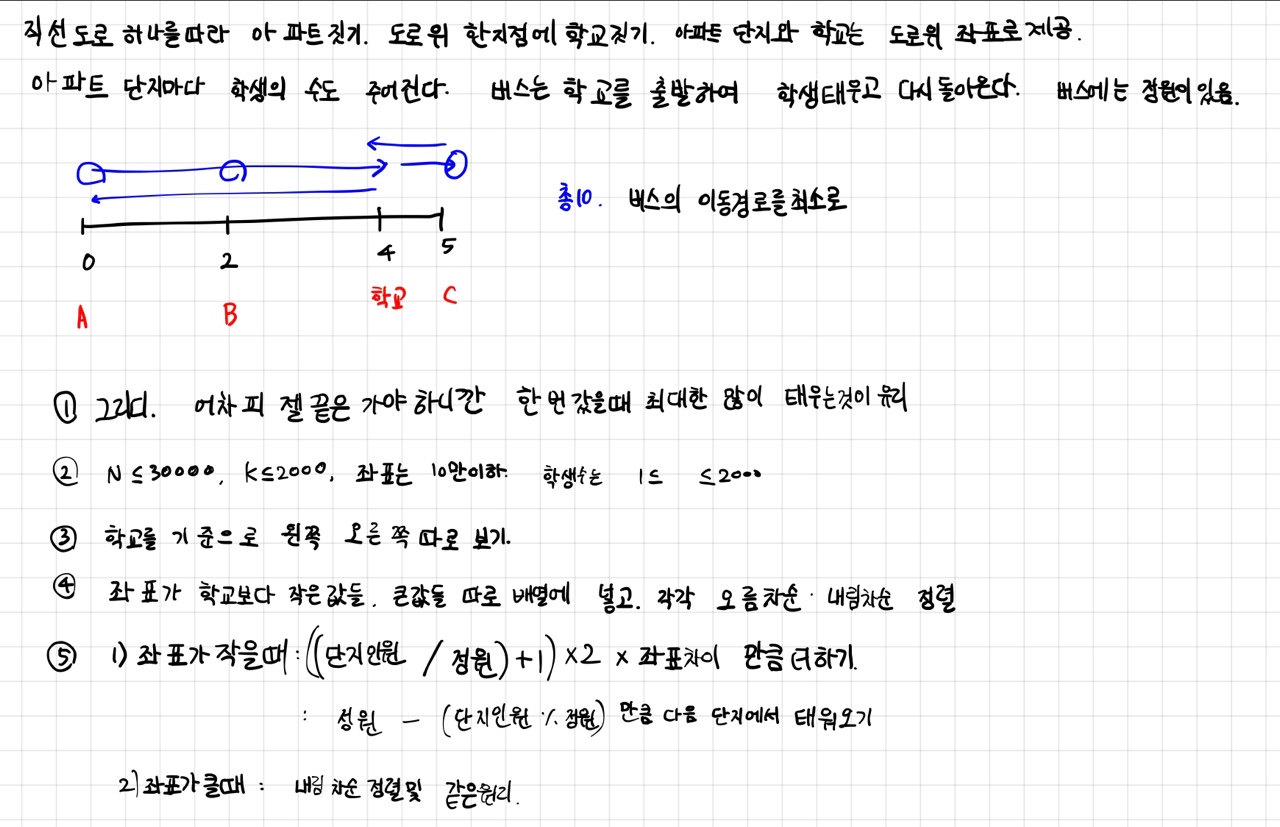 직선도로 하나를따라 아파트짓기. 도로위 한지점에 학교짓기. 아파트 단지와 학교는 도로위 좌표로제공.
아파트 단지마다 학생의 수도 주어진다. 버스는 학교를 출발하여 학생태우고 다시돌아온다. 버스에는 정원이 있음.
총10. 버스의 이동경로를최소로
0 2 4 5
A B 학교 C
① 그리디. 어차피 젤끝은 가야하니깐 한번갔을때 최대한 많이 태우는것이 유리
② N ≤ 30000, K ≤ 2000, 좌표는 10만이하. 학생수는 1 ≤ ≤ 2000
③ 학교를 기준으로 왼쪽 오른쪽 따로 보기.
④ 좌표가 학교보다 작은값들, 큰값들 따로 배열에 넣고. 각각 오름차순 · 내림차순 정렬
⑤ 1) 좌표가작을때 : ((단지인원 / 정원) + 1) × 2 × 좌표차이 만큼 더하기.
: 정원 - (단지인원 % 정원) 만큼 다음 단지에서 태워오기
2) 좌표가클때 : 내림차순 정렬및 같은원리.